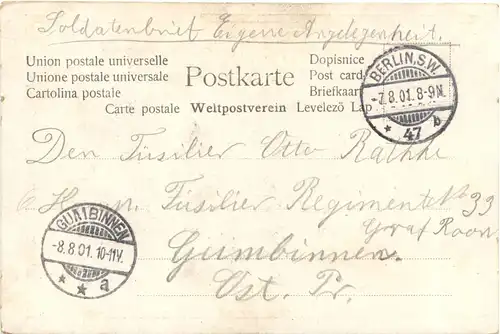 Soldatenbrief Eigene Angelegenheit.
Union postale universelle
Unione postale universale
Cartolina postale
Postkarte
Dopisnice
Post card
Briefkaart
Carte postale Weltpostverein Levelező Lap
BERLIN, S.W.
-7.8.01. 8-9N.
* 47 b
Den Füsilier Otto Rathke
Komp. Füsilier Regiment No 33
Graf Roon
Gumbinnen
Ost. Pr.
GUMBINNEN
-8.8 01. 10-11V.
* * a